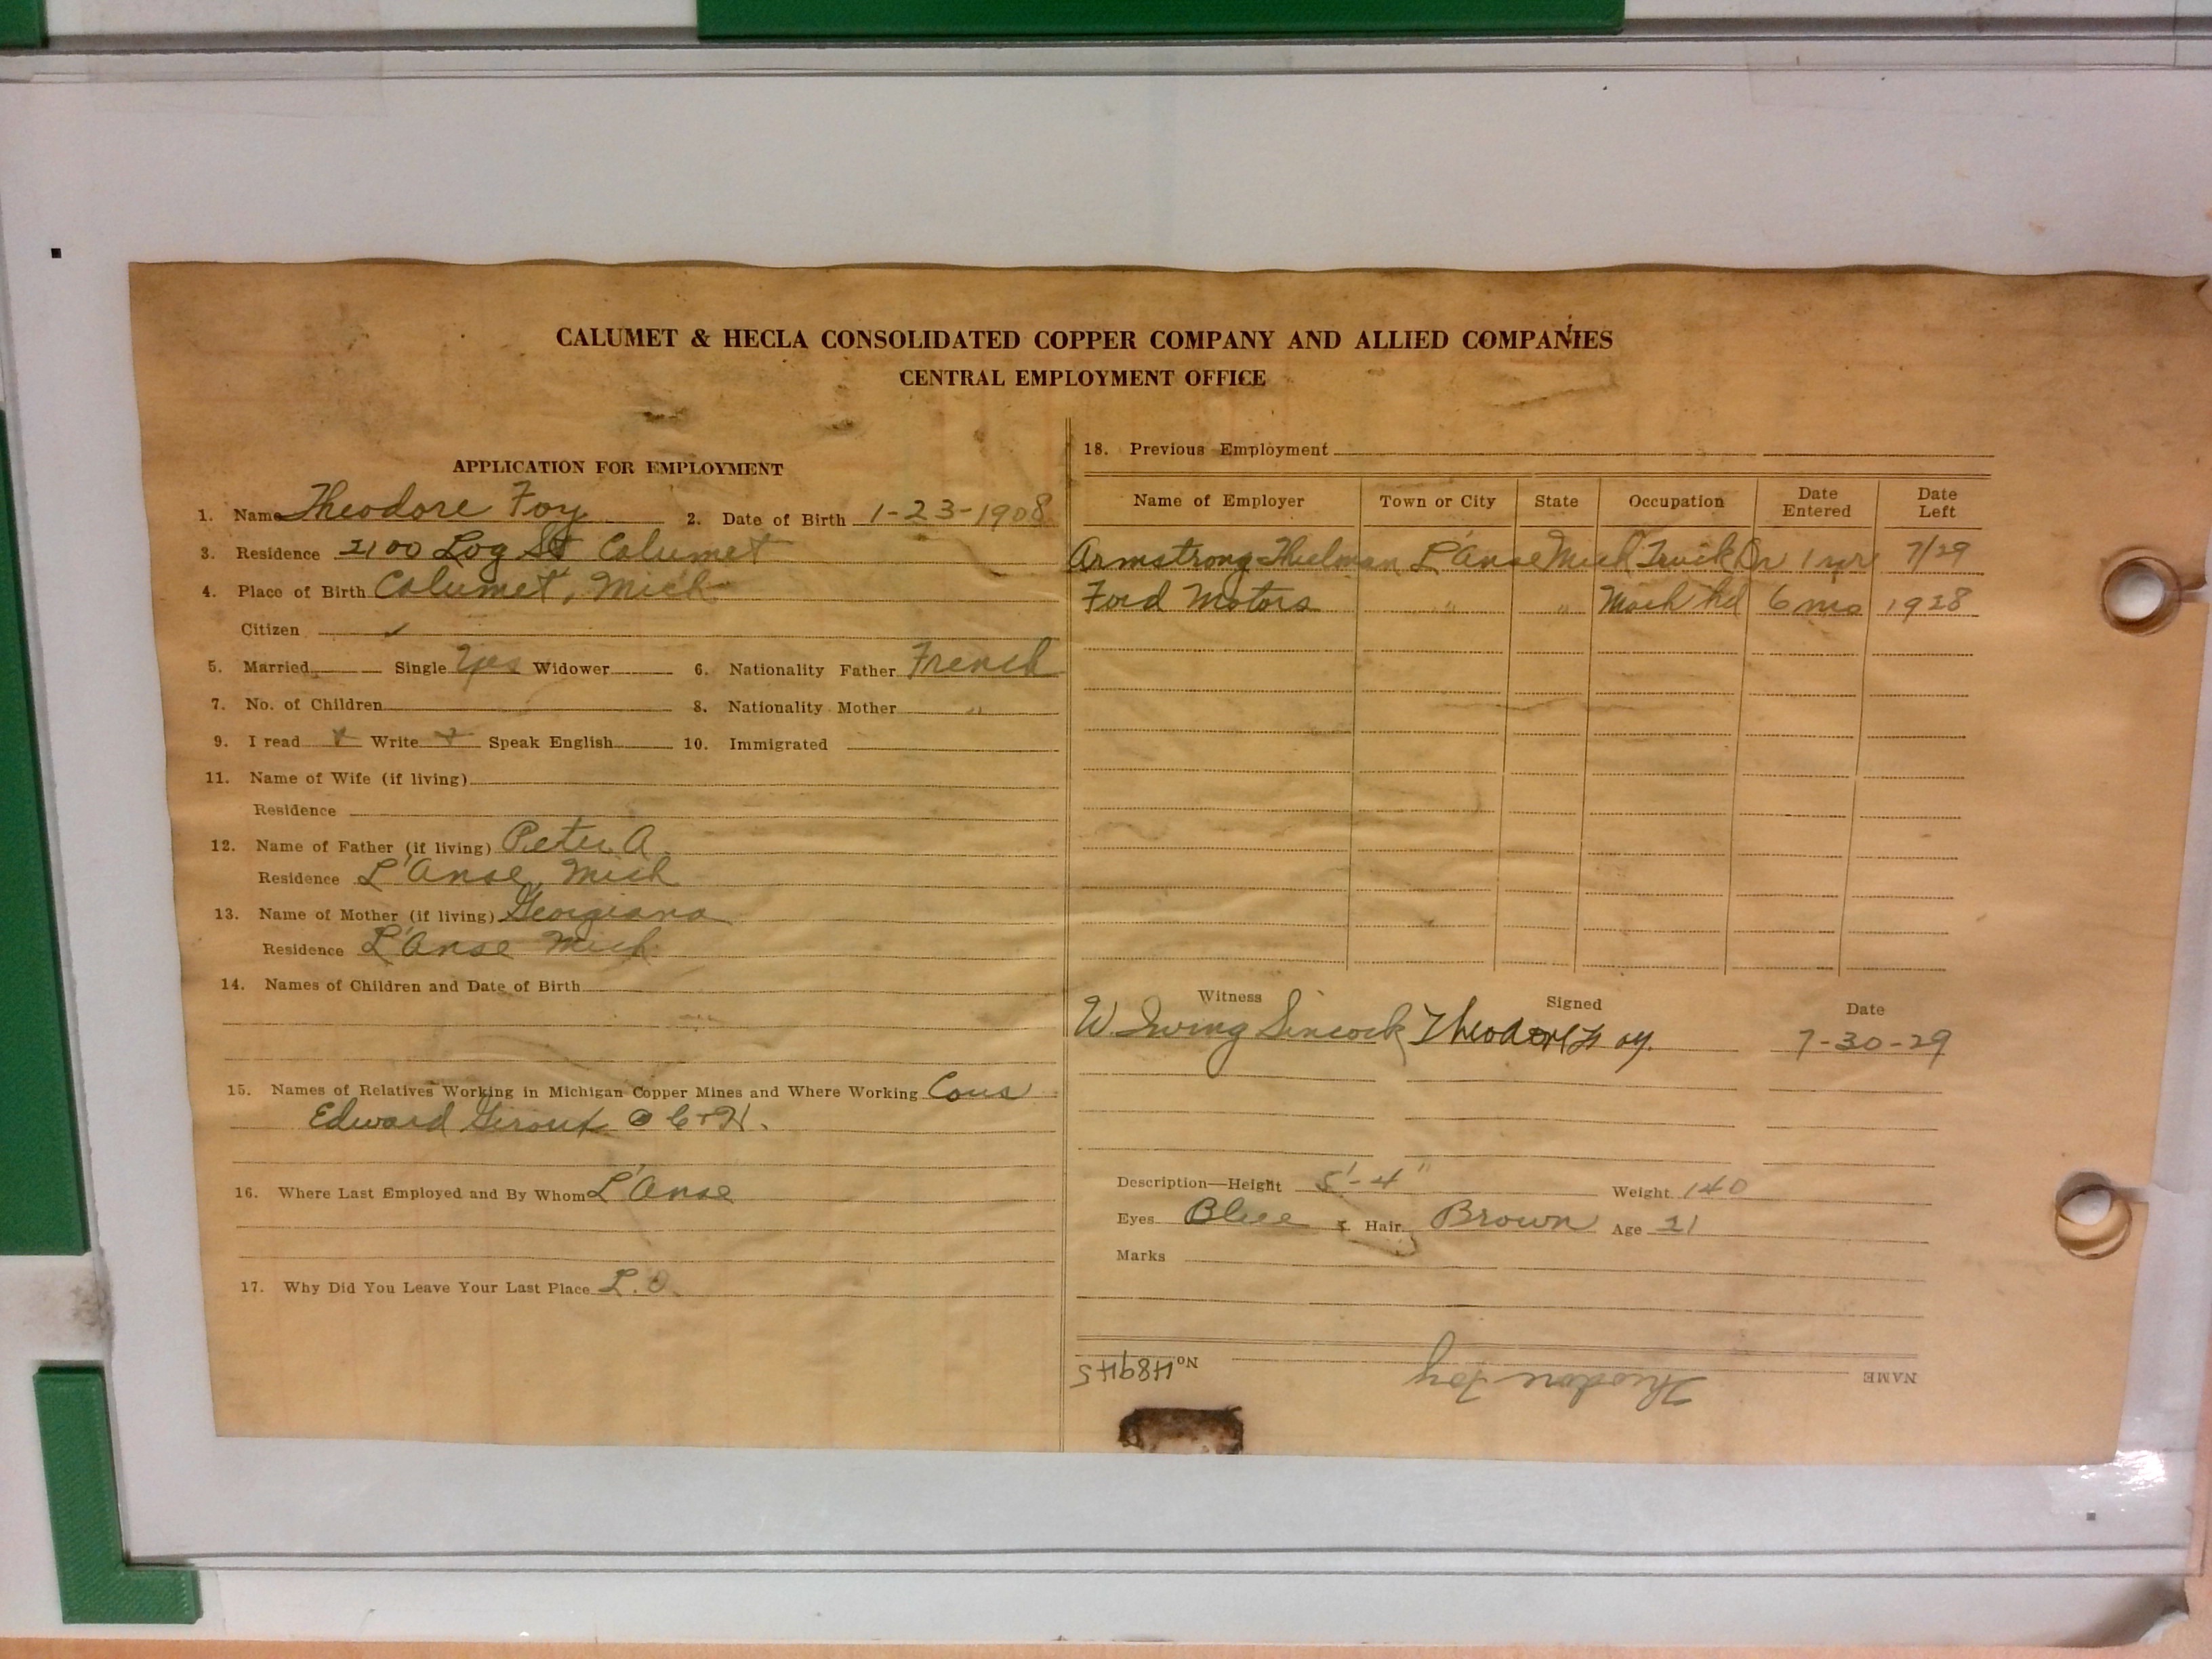 CALUMET & HECLA CONSOLIDATED COPPER COMPANY AND ALLIED COMPANIES
CENTRAL EMPLOYMENT OFFICE
APPLICATION FOR EMPLOYMENT
1. Name Theodore Foy 2. Date of Birth 1-23-1908
3. Residence 2100 Log St Calumet
4. Place of Birth Calumet, Mich
Citizen ✓
5. Married Single Yes Widower 6. Nationality Father French
7. No. of Children 8. Nationality Mother "
9. I read Write Speak English 10. Immigrated
11. Name of Wife (if living)
Residence
12. Name of Father (if living) Peter A
Residence L'Anse, Mich
13. Name of Mother (if living) Georgiana
Residence L'Anse Mich
14. Names of Children and Date of Birth
15. Names of Relatives Working in Michigan Copper Mines and Where Working Cous
Edward C+H.
16. Where Last Employed and By Whom L'Anse
17. Why Did You Leave Your Last Place L.O.
18. Previous Employment
Name of Employer Town or City State Occupation Date Entered Date Left
Armstrong Thielman L'Anse Mich Truck Dr 1 yr 7/29
Ford Motors " " Mach hd 6 mo 1928
Witness Signed Date
W. Irving Sincock Theodore Foy. 7-30-29
Description—Height 5'-4" Weight 140
Eyes Blue Hair Brown Age 21
Marks
NAME Theodore Foy No. 48945